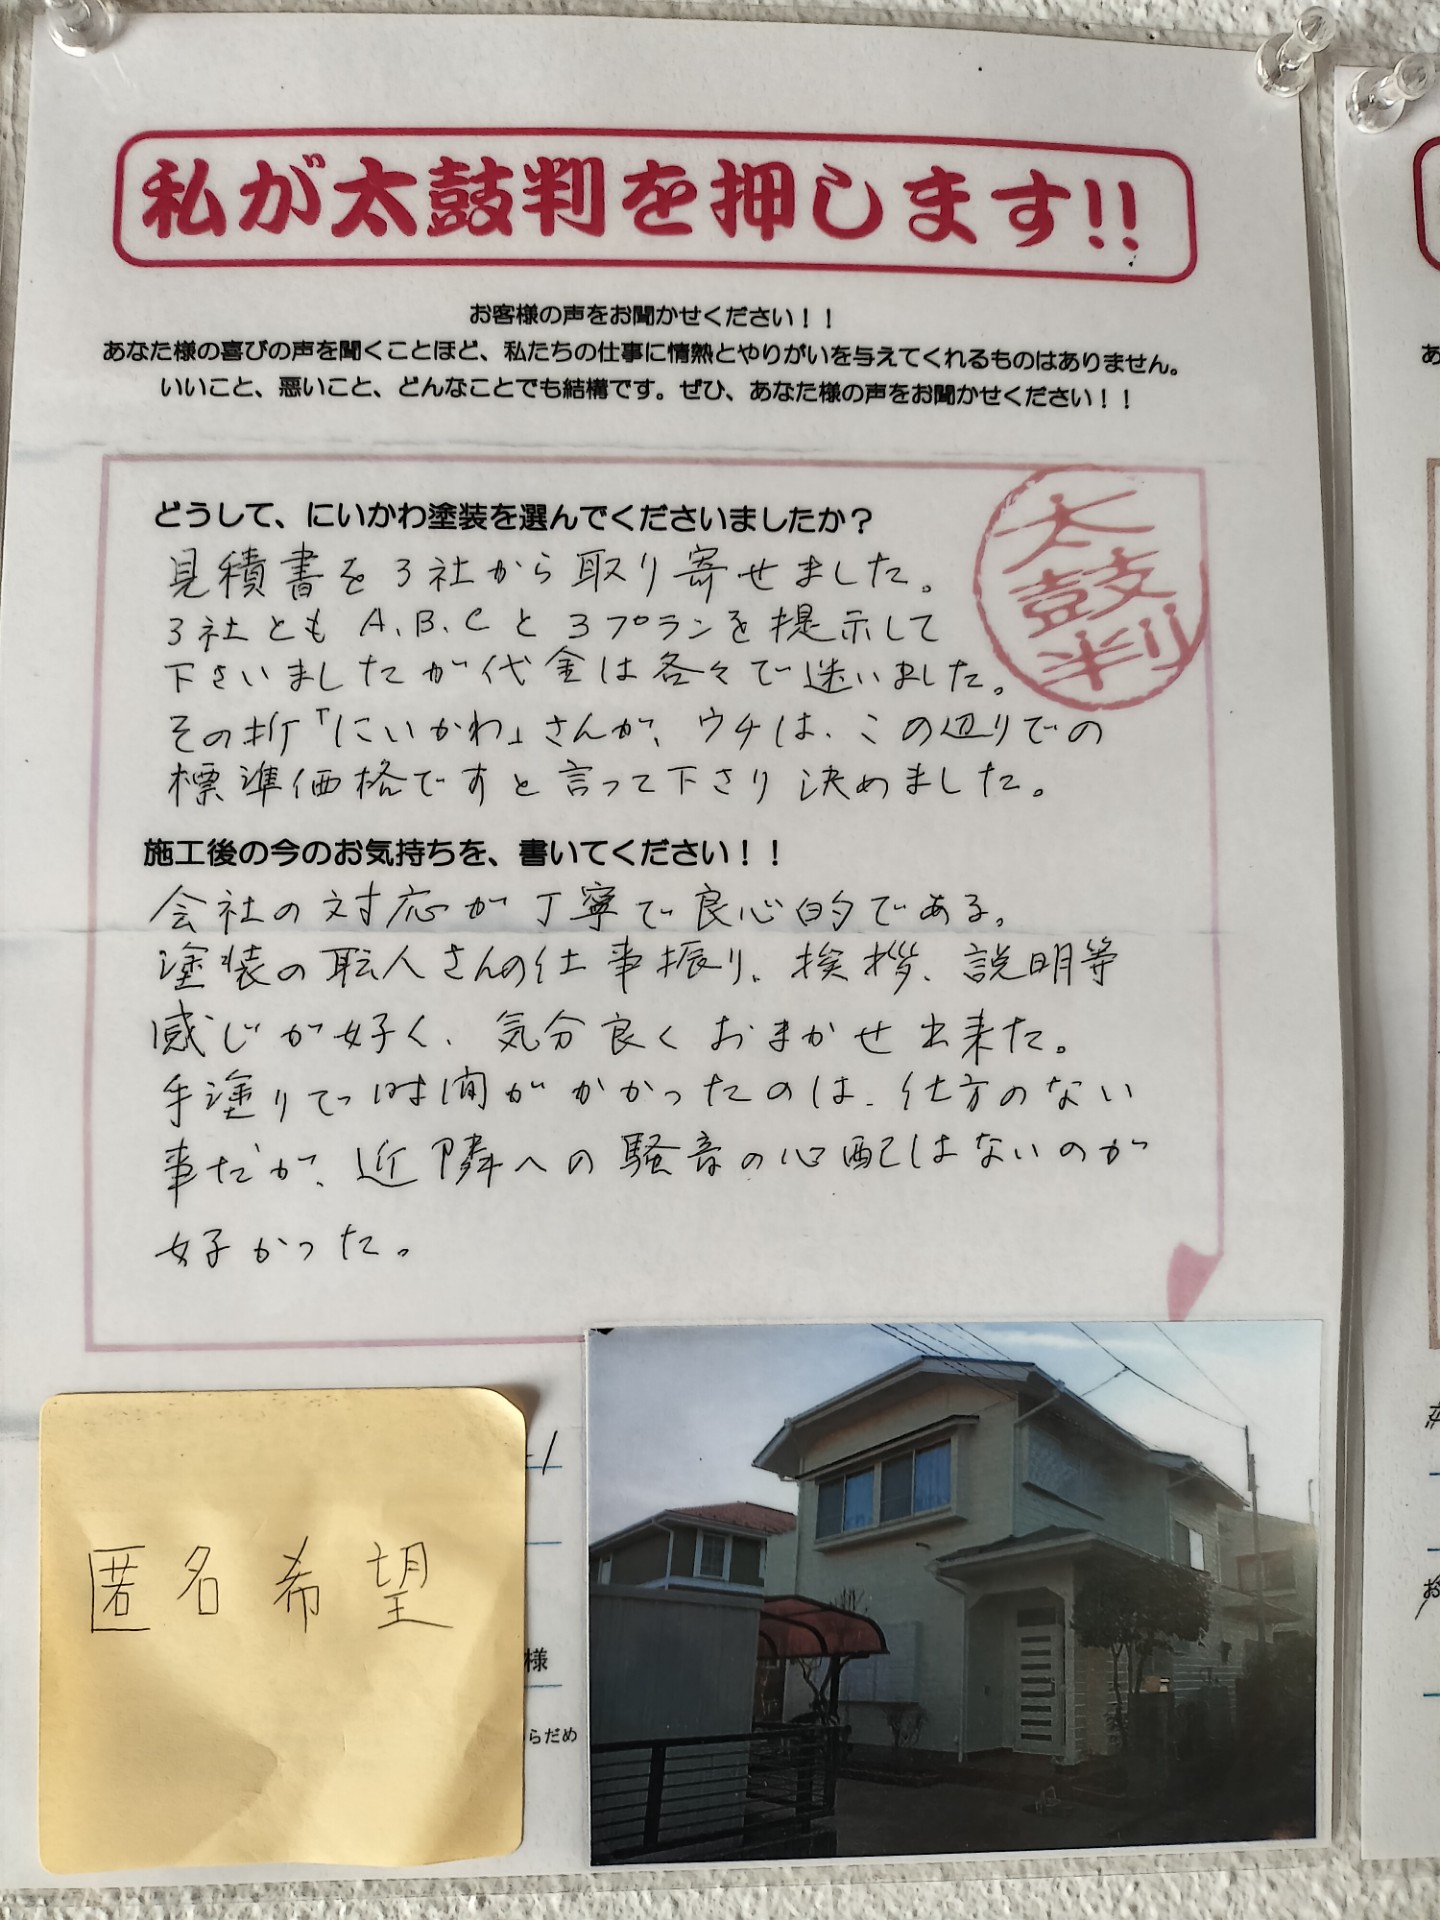 私が太鼓判を押します!!
お客様の声をお聞かせください！！
あなた様の喜びの声を聞くことほど、私たちの仕事に情熱とやりがいを与えてくれるものはありません。
いいこと、悪いこと、どんなことでも結構です。ぜひ、あなた様の声をお聞かせください！！
太鼓判
どうして、にいかわ塗装を選んでくださいましたか？
見積書を3社から取り寄せました。
3社とも A.B.Cと 3プランを提示して
下さいましたが代金は各々で迷いました。
その折「にいかわ」さんが、ウチは、この辺りでの
標準価格ですと言って下さり 決めました。
施工後の今のお気持ちを、書いてください！！
会社の対応が丁寧で良心的である。
塗装の職人さんの仕事振り、挨拶、説明等
感じが好く、気分良くおまかせ出来た。
手塗りで時間がかかったのは、仕方のない
事だが、近隣への騒音の心配はないのが
好かった。
匿名希望
様
らだめ
あ
お